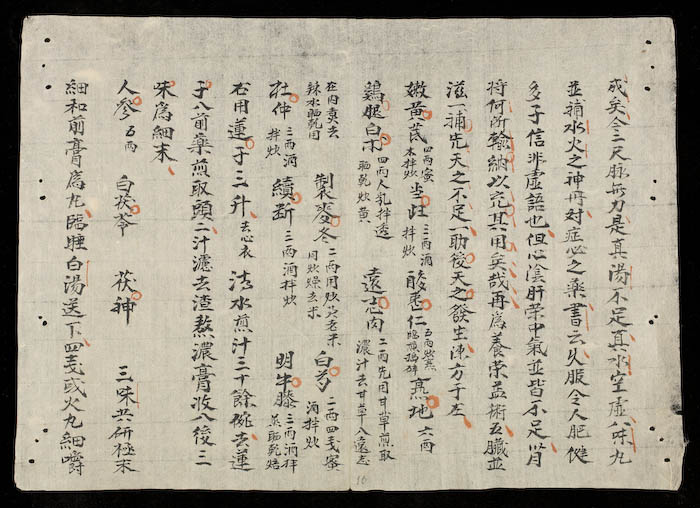 成矣今二尺脉無力是真湯不足真水空虛八味九
並補水火之神丹对症必之藥書云久服令人肥健
多子信非虛語也但心陰肝荣中氣並皆不足
将何所輸納以充其用矣哉再為養荣益術五臟並
滋一補先天之不足一助後天之發生陳方于左
嫩黃芪 四両蜜水拌炒 当歸 三両酒拌炒 酸枣仁 五両炒黑臨煎搗碎 熟地 六両
鷄腿白朮 四両人乳拌透晒乾炒黃 遠志肉 二両先用甘草煎取濃汁去甘草入遠志
在内煮去辣水晒乾用 製麥冬 二両用炒老米同炒燥去米 白芍 二両四戔蜜酒拌炒
杜仲 三両酒拌炒 續断 三両酒拌炒 明牛膝 三両酒拌蒸晒乾焙
右用蓮子三升 去心衣 清水煎汁三十餘碗去蓮
子入前藥煎取頭二汁濾去渣熬濃膏收入後三
味為細末
人參 五両 白茯苓 茯神 三味共研極末
細和前膏為丸臨睡白湯送下四戔或火九細嚼
10